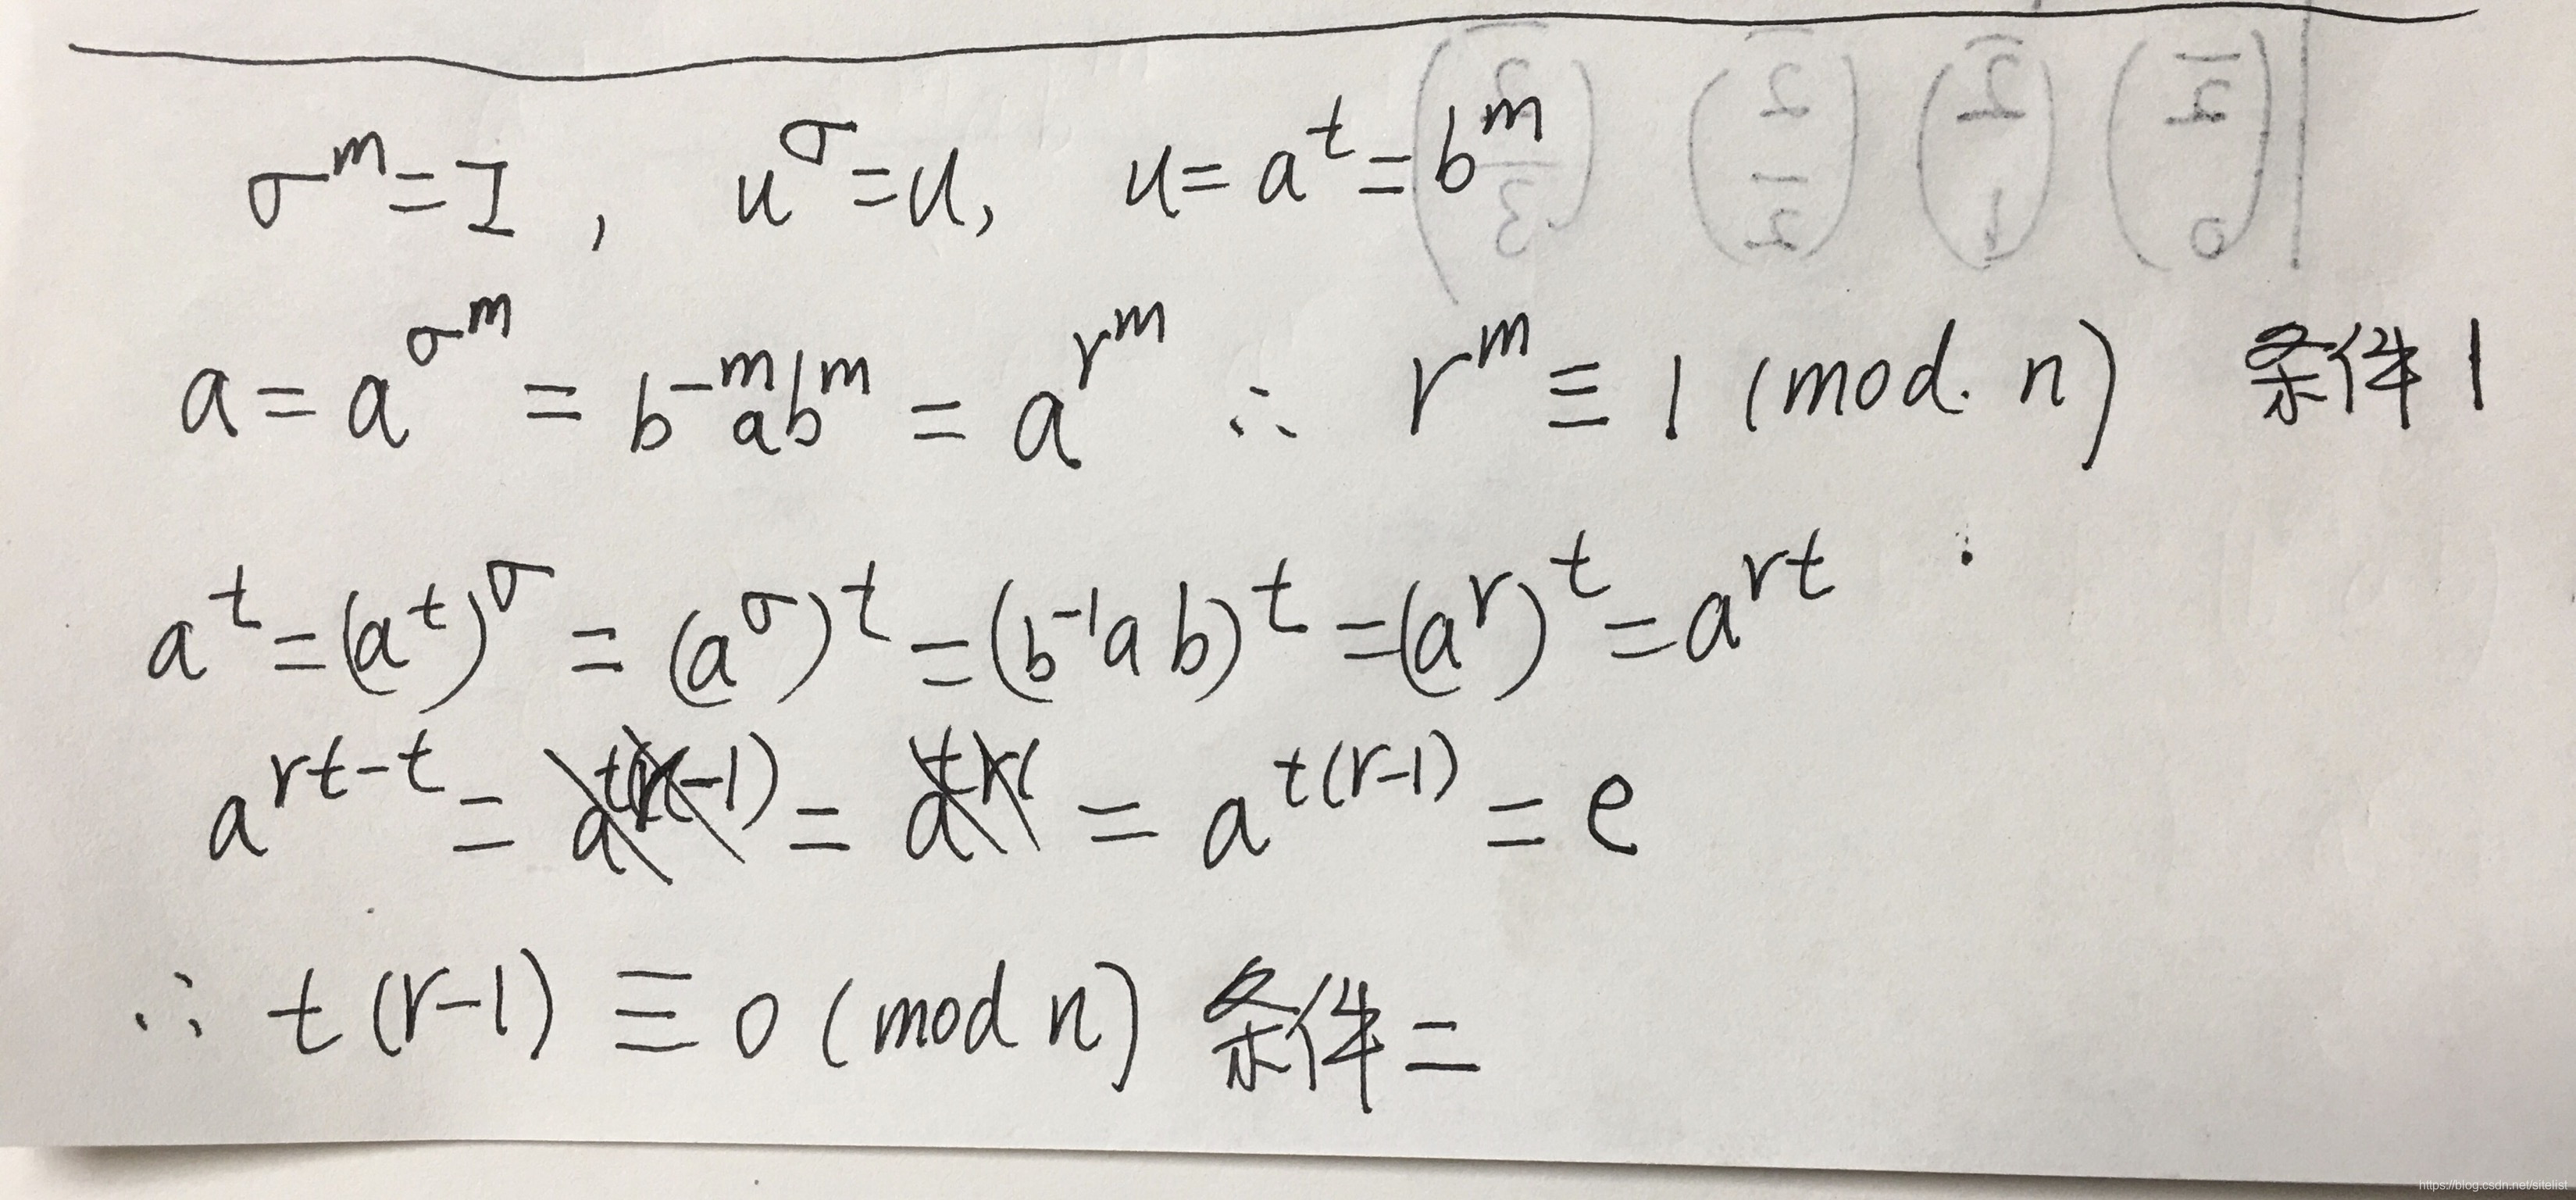 σ^m = I , u^σ = u, u = a^t = b^m
a = a^{σ^m} = b^{-m}ab^m = a^{r^m} ∴ r^m ≡ 1 (mod. n) 条件1
a^t = (a^t)^σ = (a^σ)^t = (b^{-1}ab)^t = (a^r)^t = a^{rt}
a^{rt-t} = = = a^{t(r-1)} = e
∴ t(r-1) ≡ 0 (mod n) 条件二
https://blog.csdn.net/sitelist